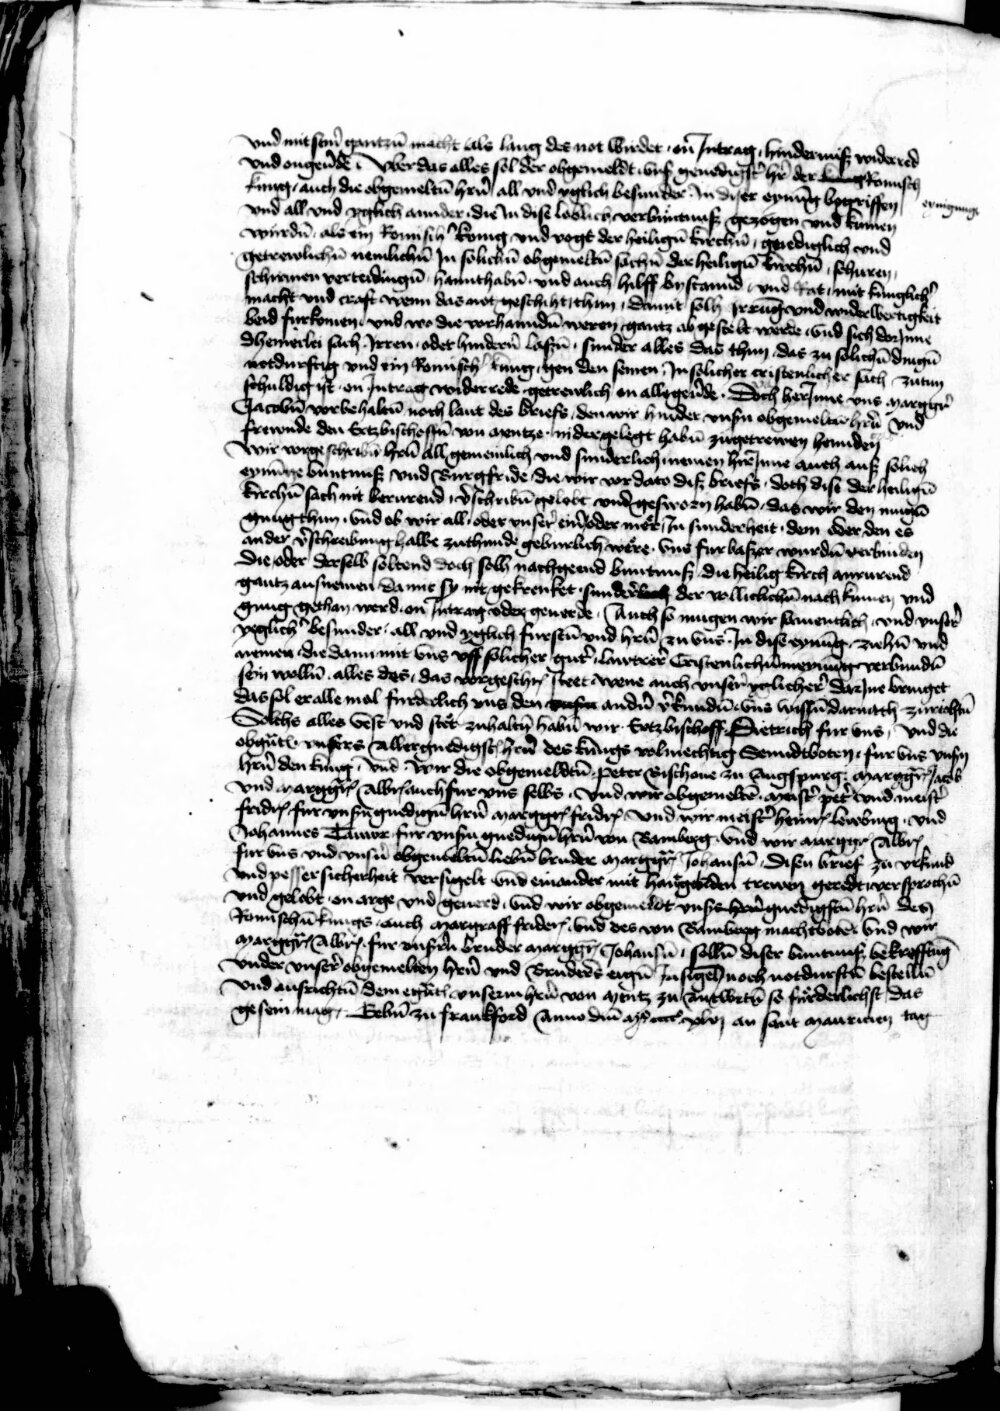 und mit seiner gantzñ macht als lang des not wirdet, on Intrag, hindernuß widerred
und ongeũde. Uber das alles sol der obgemeldt, uns genedigst hr̃ der Romisch
kunig, auch die obgemeltñ hrñ all und yglich besunder In diser eynũng begriffen
eynigunge
und all und yglich annder, die In dise loblich verbuntnuß gezogen und kumen
wurdñ, als ein Romischer konig und vogt der heiligñ kirchñ, genediglich und
getrewlichñ nemlichñ In solichñ obgemeltñ sachñ der heiligñ kirchñ, schuren,
schirmen verteidingñ, hannthabñ und auch hilff bystannd, und Rat, mit kuniglichr̃
macht und craft wenn das not geschiht thun, damit solh Irrũng und widerwertigkeit
beid furkomen, und wo die vorhanndñ weren, gantz abgestelt werde, und sich dor Inne
dheinerlei sach, Irren, oder hindern laßñ, sunder alles das thun, das zu solichñ dingñ
notdurftig und ein Romischr̃ kunig, gen den seinen, In solicher cristenlicher sach, zutun
schuldig ist, on Intrag widerrede getrewlich on alle geũde. Doch her Inne uns marggr̃
Jacobñ vorbehaltñ noch laut des briefs, den wir hinder unsñ obgemeltñ hrñ und
frewnde den Ertzbischoffñ von Mentze, nidergelegt habñ zu getrewen hannden
Wir vorgeschribñ hrñ all gemeinlich und sunderlich nemen hr̃ Inne auch auß solich
eynunge buntnuß und Burgfride, die wir vor dato diß briefs, doch dise der heiligñ
kirchñ sach nit berurend, v̾schribñ gelobt und gesworn habñ, das wir den mugñ
gnug thun, und ob wir all, oder unser einer oder mer, In sunderheit, dem oder den es
ander v̾schreibung halbe zuthunde geburlich were, uns furbaßer wurdñ verbinden
die, oder derselb soltend doch solh nachgeend buntnuß, die heilig kirch anrurend
gantz ausnemen, damit sy nit gekrenket, sunder der volliclichñ nach kumen und
gnug gethan werd, on Intrag oder geuerde. Auch so mugen wir samentlich, und unser
yglichr̃ besunder, all und yglich furstñ und hrñ, zu uns In dise eynũng, ziehñ und
nemen, die dann mit uns uff solicher gutr̃, lawtrer Cristenlichñ meynung verbundñ
sein wollñ, alles des, das vorgeschr̃ steet, wenn auch unser yglicher dar Ine bringet
das sol er alle mol furderlich uns den andñ v̾kundñ, uns wissñ darnach zurichtñ
Solchs alles vest und stet zuhaltñ habñ wir Ertzbischoff Dietrich fur uns, und die
obgñtñ unsers allergnedigstñ hrñ des kungs volmechtig Senndtboten, fur uns unsñ
hrñ den kung, und wir die obgemeldtñ, Peter Bischove zu Augspurg, Marggr̃ Jacob
und Marggr̃ Albr̃ auch fur uns selbs, und wir obgemelte, Meistr̃ petr̃ und meistr̃
fridr̃, fur unsñ gnedigñ hrñ Marggr̃ fridr̃, und wir meistr̃ heinr̃ lewbing, und
Johannes Tawor, fur unsñ gnedigñ hrñ von Bamberg, und wir Marggr̃ Albr̃
fur uns und unsñ obgemeltñ liebñ bruder Marggr̃ Johansñ, disñ brief zu urkund
und pesser sicherheit versigelt und einander mit hantgebenden trewen geredt versprochñ
und gelobt, on arge und geuerd, und wir obgemeldt unsrs gnedigstñ hrñ des
Romischñ kungs, auch margraff fridr̃, und des von Bamberg machtboten und wir
Marggr̃ Albr̃, fur unsern bruder Marggr̃ Johansñ, sollñ diser buntnuß bekrefftũg
under unser obgemelten hrñ und Bruders eigñ Insigel noch notdurftñ bestellñ
und ausrichtñ dem egñtñ unserm hrñ von Mentz zu antwrtñ so furderlichst das
gesein mag. Gebñ zu franckford Anno dñi Mº ccccº xlvj an sant Mauricien tag